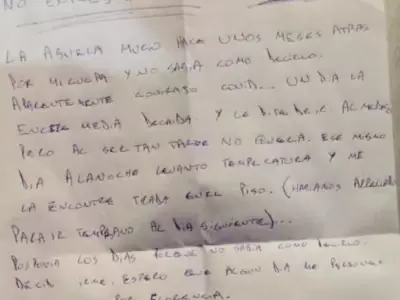 LA ABUELA MURIO HACE UNOS MESES ATRAS
POR MI CULPA Y NO SABIA COMO DECIRLO.
APARENTEMENTE CONTRAJO COVID... UN DIA LA
ENCONTRE MEDIA DECAIDA. Y LE DIJE DE IR AL MEDICO
PERO AL SER TAN TARDE NO QUERIA. ESE MISMO
DIA A LA NOCHE LEVANTO TEMPERATURA Y ME
LA ENCONTRE TIRADA EN EL PISO. (HABIAMOS ARREGLADO
PARA IR TEMPRANO AL DIA SIGUIENTE)...
POSPONIA LOS DIAS PORQUE NO SABIA COMO DECIRLO.
DECIDI IRME, ESPERO QUE ALGUN DIA ME PERDONEN
POR FLORENCIA.